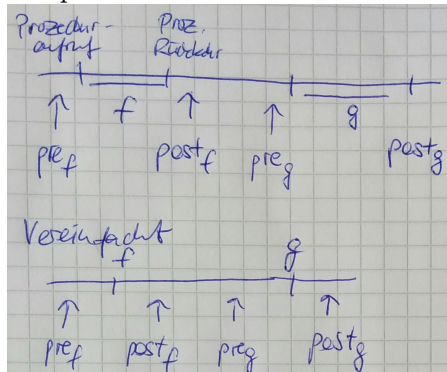 Prozedur-   Proz.
aufruf   Rückkehr
f   g
pre_f   post_f   pre_g   post_g
Vereinfacht
f   g
pre_f   post_f   pre_g   post_g